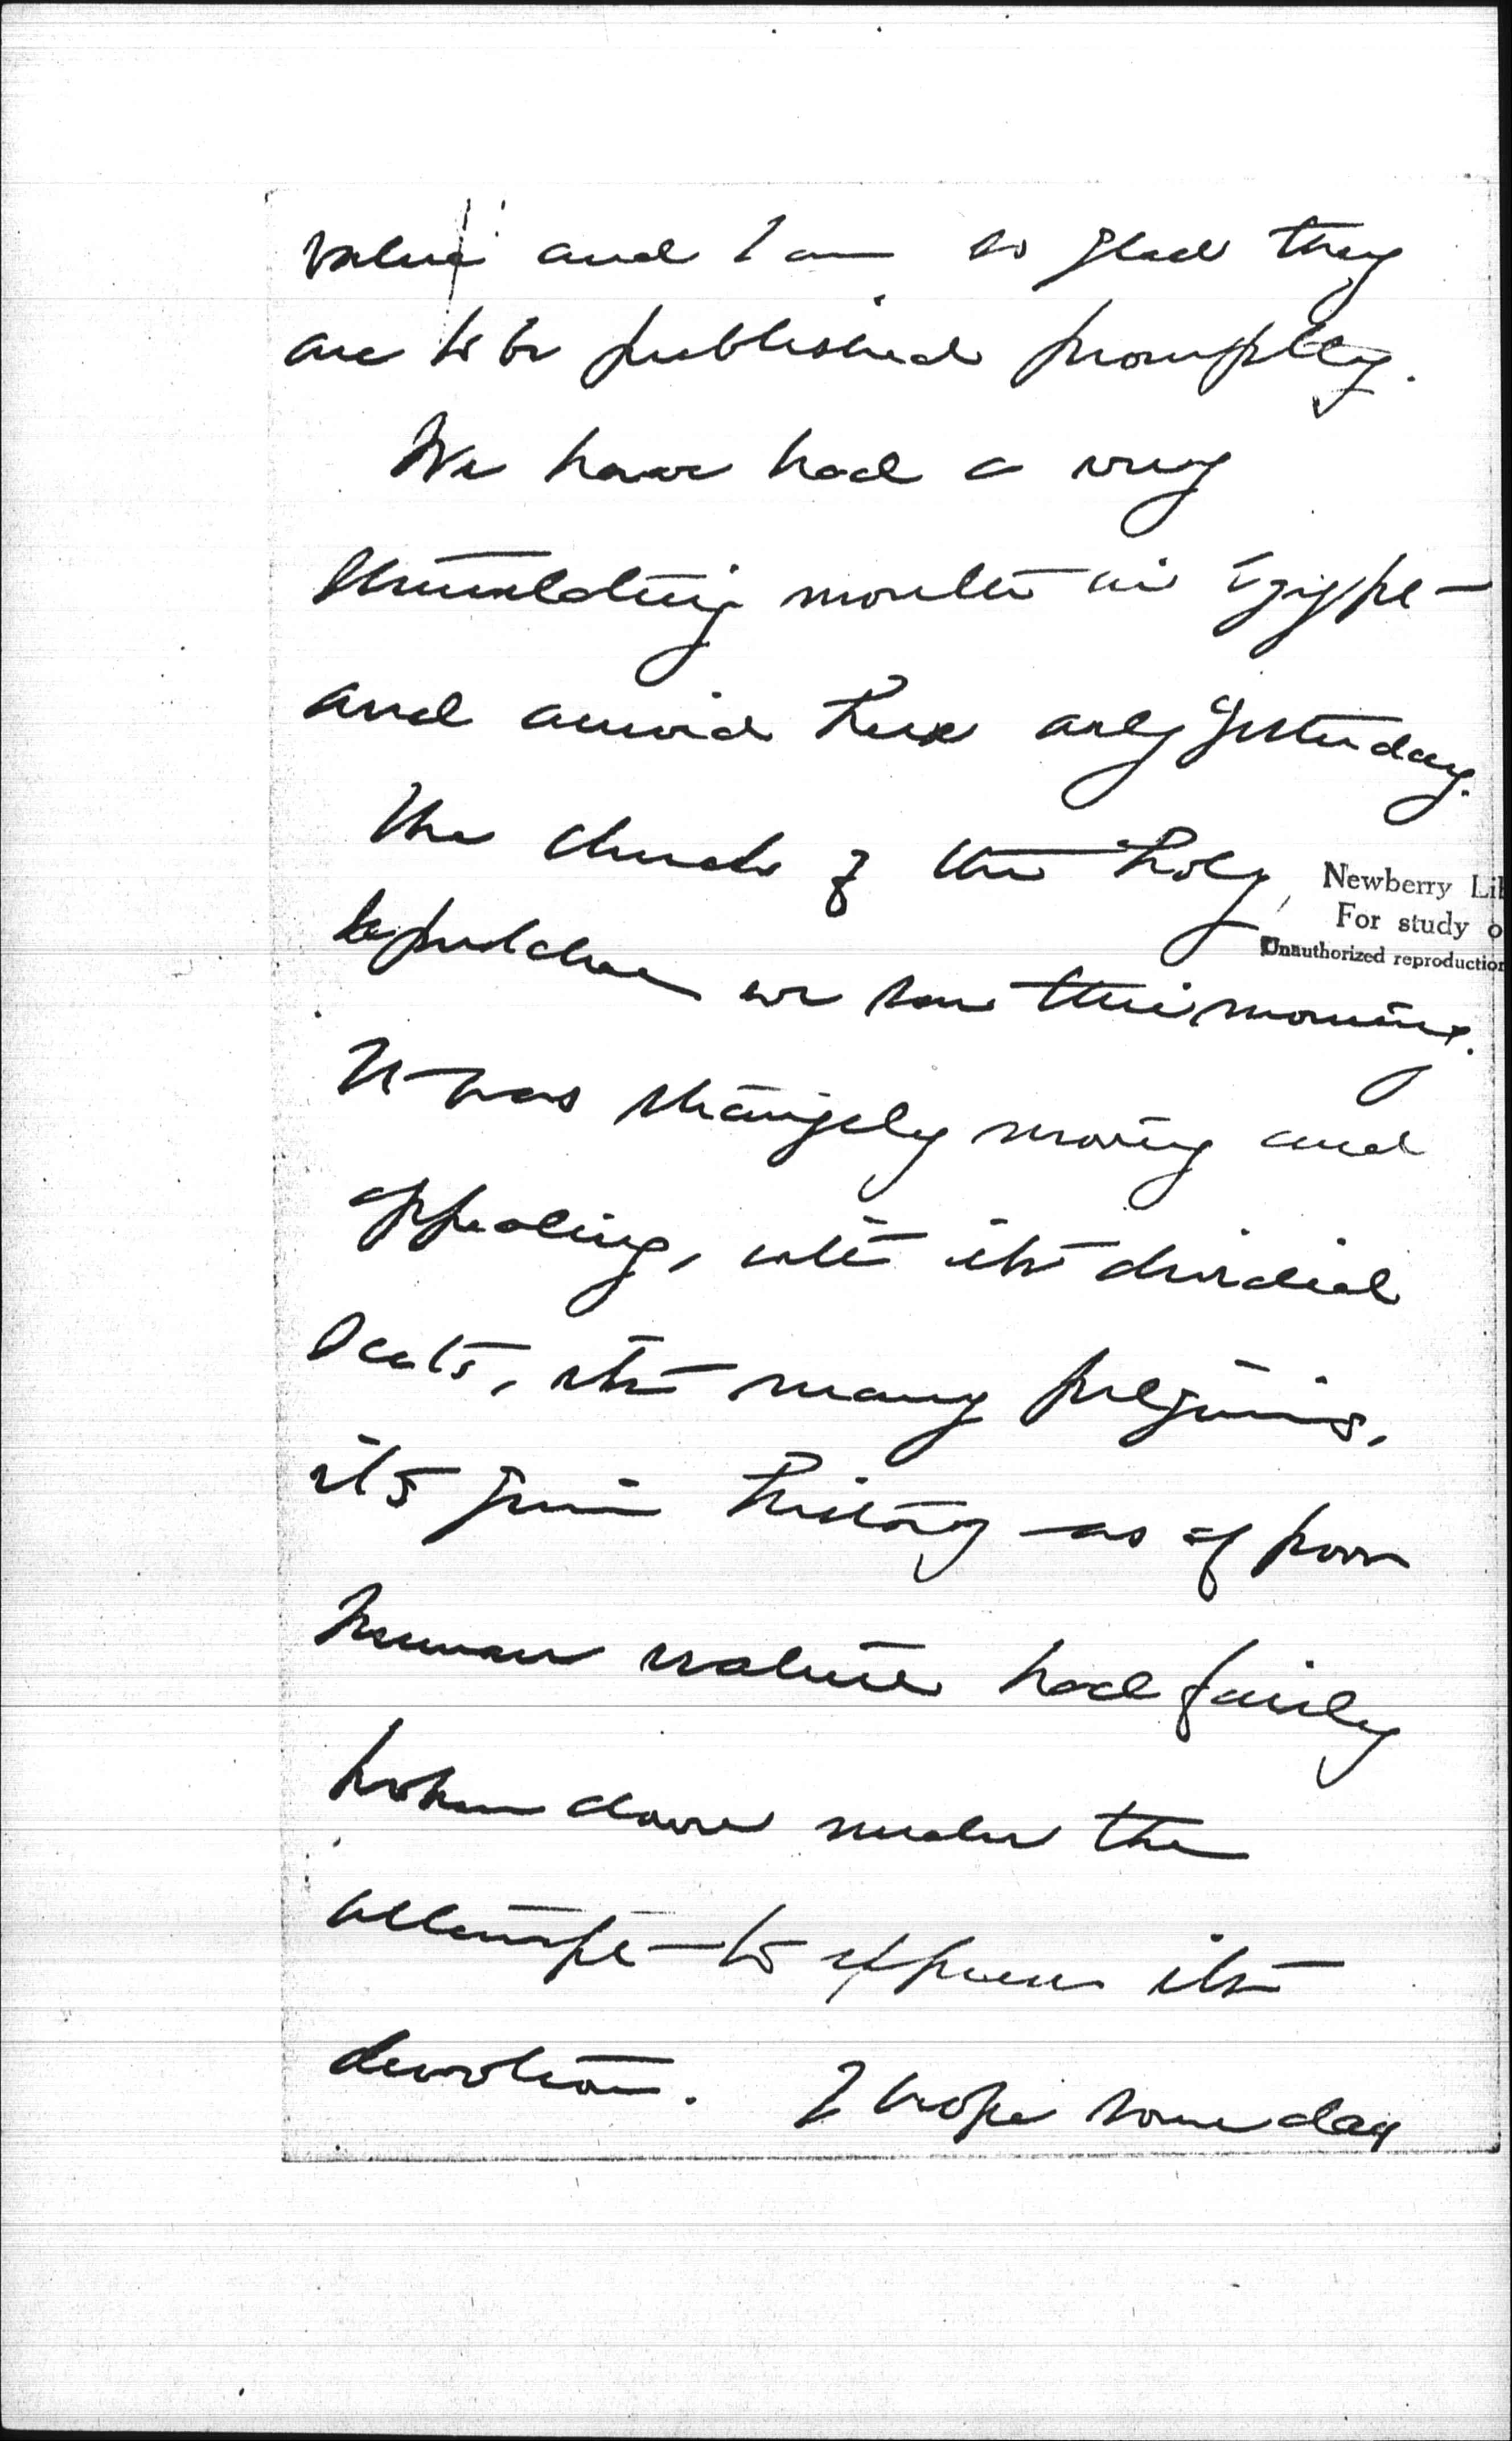 value and I am so glad they
are to be published promptly.
We have had a very
stimulating month in Egypt
and arrived here only yesterday.
The church of the Holy
Newberry Lib
For study o
Unauthorized reproduction
Sepulchre we saw this morning.
It was strangely moving and
appealing, with its divided
sects, its many pilgrims,
its grim history as if poor
human nature had fairly
broken down under the
attempt to express its
devotion. I hope some day